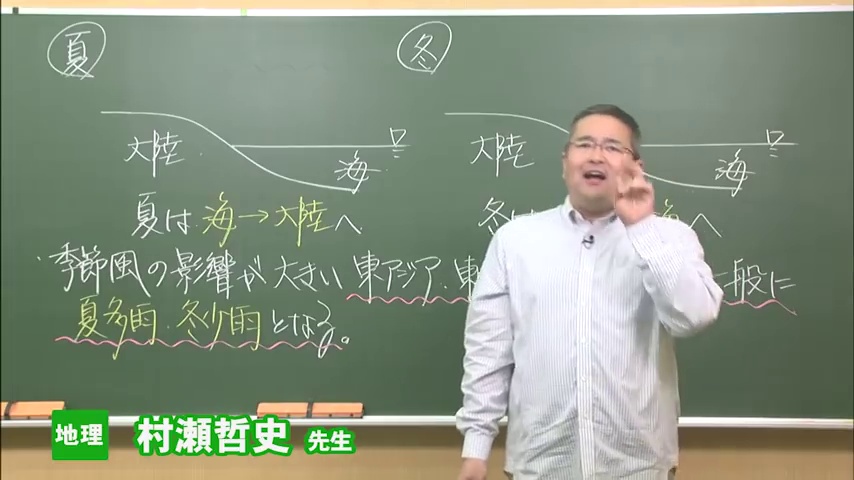 夏
冬
大陸
海
大陸
海
夏は 海→大陸へ
冬は へ
・季節風の影響が大きい 東アジア・東 一般に
夏多雨・冬少雨となる。
地理 村瀬哲史 先生